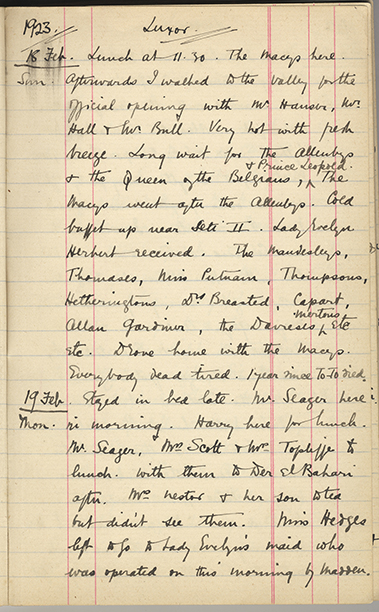 1923. Luxor.
18 Feb. Lunch at 11.30. The Macys here.
Sun. Afterwards I walked to the Valley for the
official opening with Mr Hauser, Mr
Hall & Mr Bull. Very hot with fresh
breeze. Long wait for the Allenbys
& Prince Leopold
& the Queen of the Belgians, The
Macys went after the Allenbys. Cold
buffet up near Seti II. Lady Evelyn
Herbert received. The Maudesleys,
Thomases, Miss Putnam, Thompsons,
Hetheringtons, Drs Breasted, Capart,
Mertons
Allan Gardiner, the Davieses, Etc
Etc. Drove home with the Macys.
Everybody dead tired. 1 year since To To died
19 Feb. Stayed in bed late. Mr. Seager here
Mon. in morning. Harry here for lunch.
Mr. Seager, Mrs Scott & Mrs Topliffe to
lunch. with them to Der El Bahari
aftn. Mrs Nestor & her son to tea
but didn't see them. Miss Hedges
left to go to Lady Evelyn's maid who
was operated on this morning by Madden.